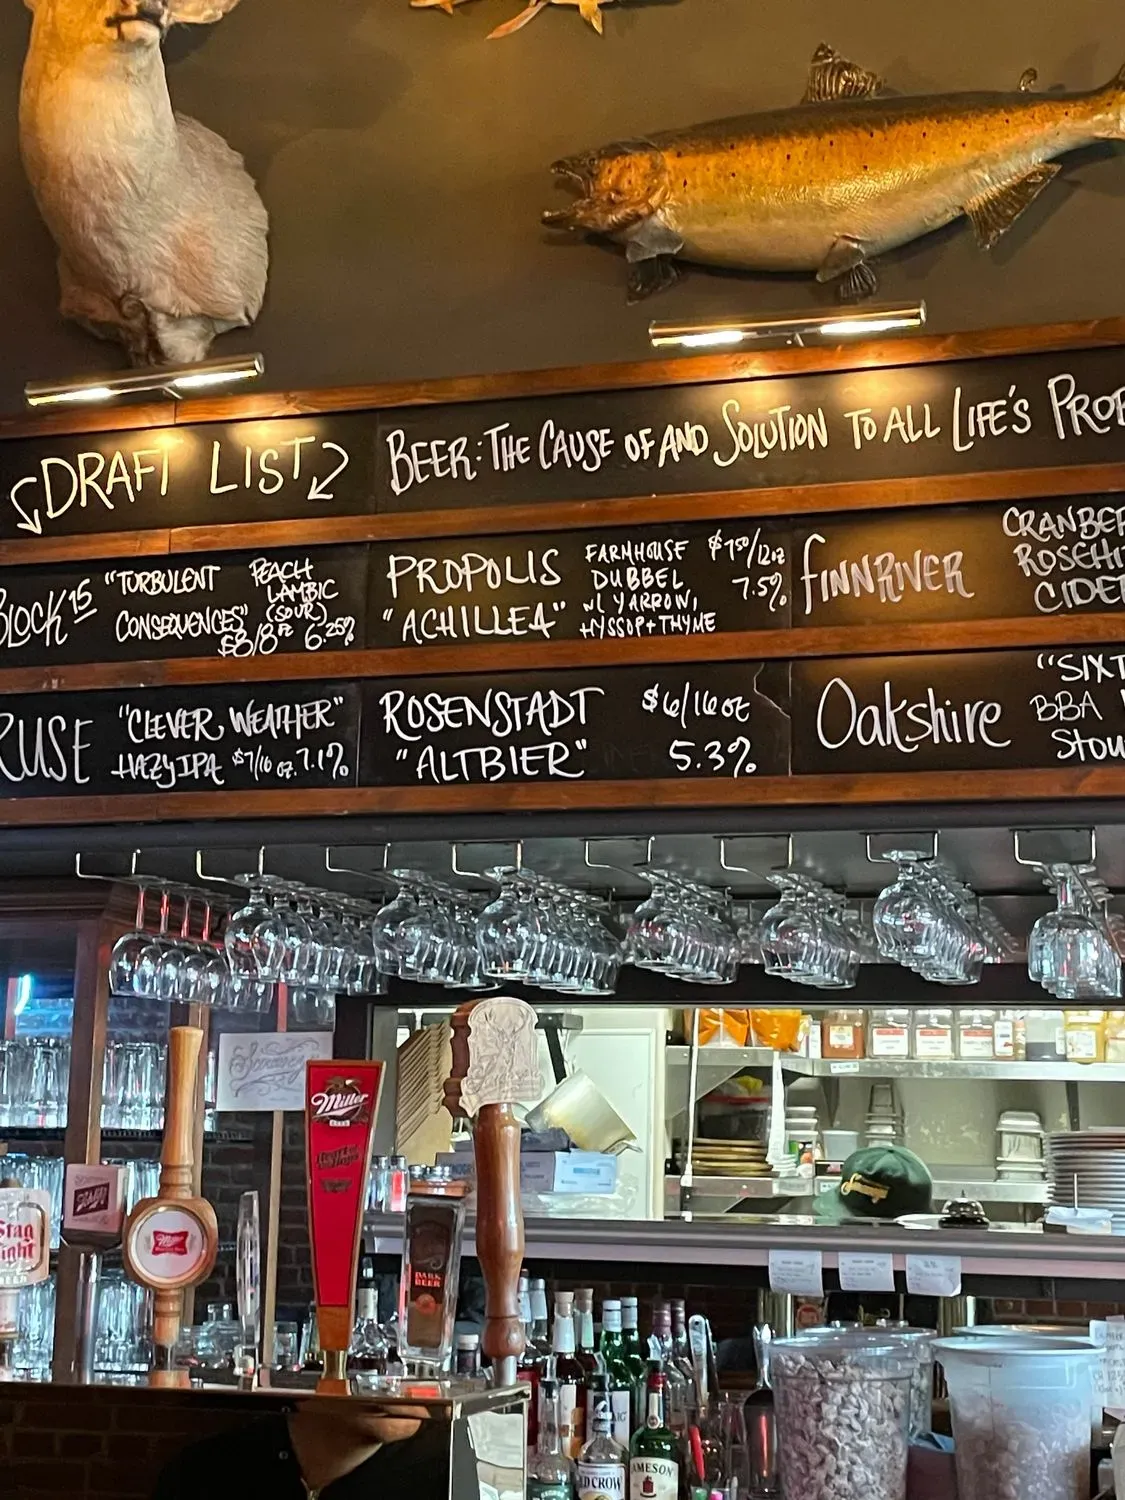 DRAFT LIST
BEER: THE CAUSE OF AND SOLUTION TO ALL LIFE'S PROB
BLOCK 15
"TURBULENT
CONSEQUENCES"
PEACH
LAMBIC
(SOUR)
$8/8oz 6.25%
PROPOLIS
"ACHILLEA"
FARMHOUSE
DUBBEL
W/ YARROW,
HYSSOP + THYME
$7.50/12oz
7.5%
FINNRIVER
CRANBER
ROSEHI
CIDER
RUSE
"CLEVER WEATHER"
HAZY IPA $7/16 oz. 7.1%
ROSENSTADT
"ALTBIER"
$6/16oz
5.3%
Oakshire
"SIXT
BBA
STOU
Miller
DARK
BEER
Stag
ight
BEER
Miller
D CROW
JAMESON